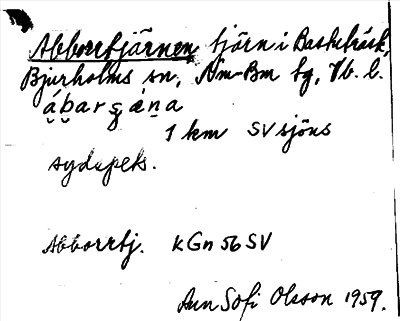 Abborrtjärnen tjärn i Bastuträsk,
Bjurholms sn, Nm-Bm tg, Vb. l.
1 km SV sjöns
sydspets.
Abborrtj. KGn 56 SV
Ann Sofi Olsson 1959.